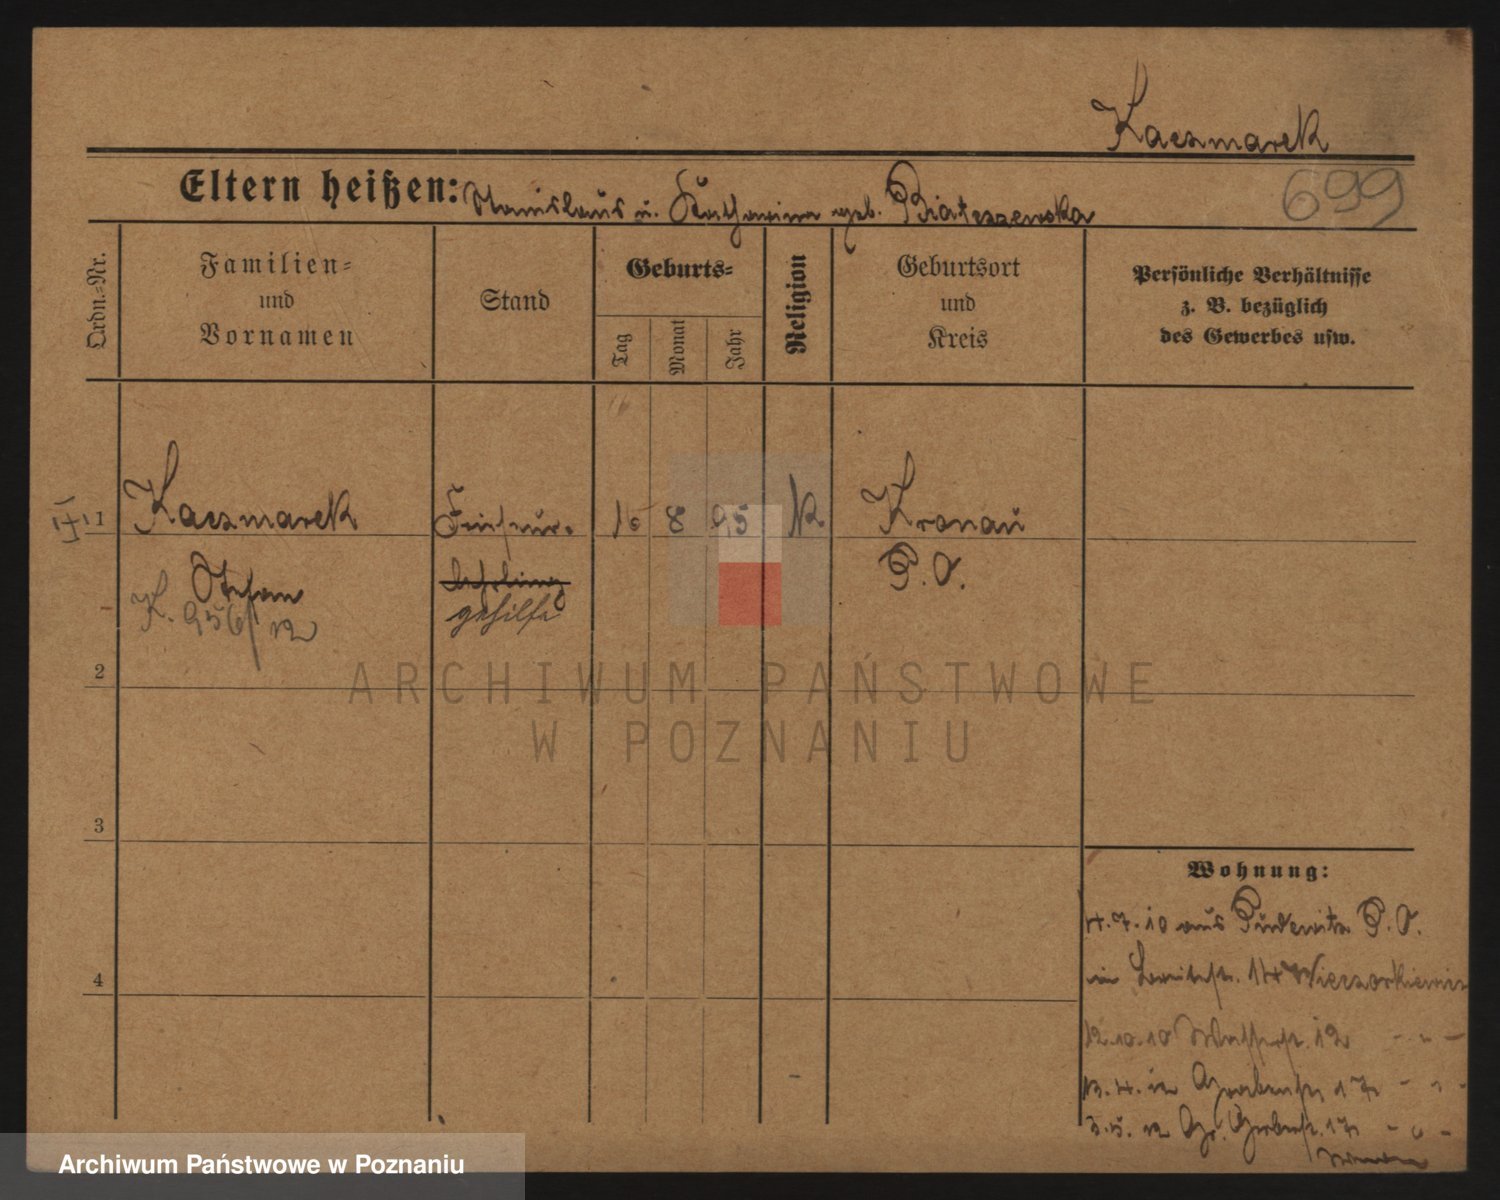 Kaczmarek
Eltern heißen: Stanislaus u. Katharina geb. Białeszewska
699
Ordn.=Nr.
Familien=
und
Vornamen
Stand
Geburts=
Tag
Monat
Jahr
Religion
Geburtsort
und
Kreis
Persönliche Verhältnisse
z. B. bezüglich
des Gewerbes usw.
1 Kaczmarek Friseur- 16 8 95 K Kronau
Stefan lehrling P. O.
K. 956/12 gehilfe
2
ARCHIWUM PAŃSTWOWE
W POZNANIU
3
Wohnung:
4.7.10 aus Pudewitz P. O.
in Breitestr. 14 Wieczorkiewicz
4
12.10.10 Wasserstr. 12 - " -
13.4.12 Grabenstr 17 - " -
3.5.12 Gr. Gerberstr. 17 - " -
Archiwum Państwowe w Poznaniu